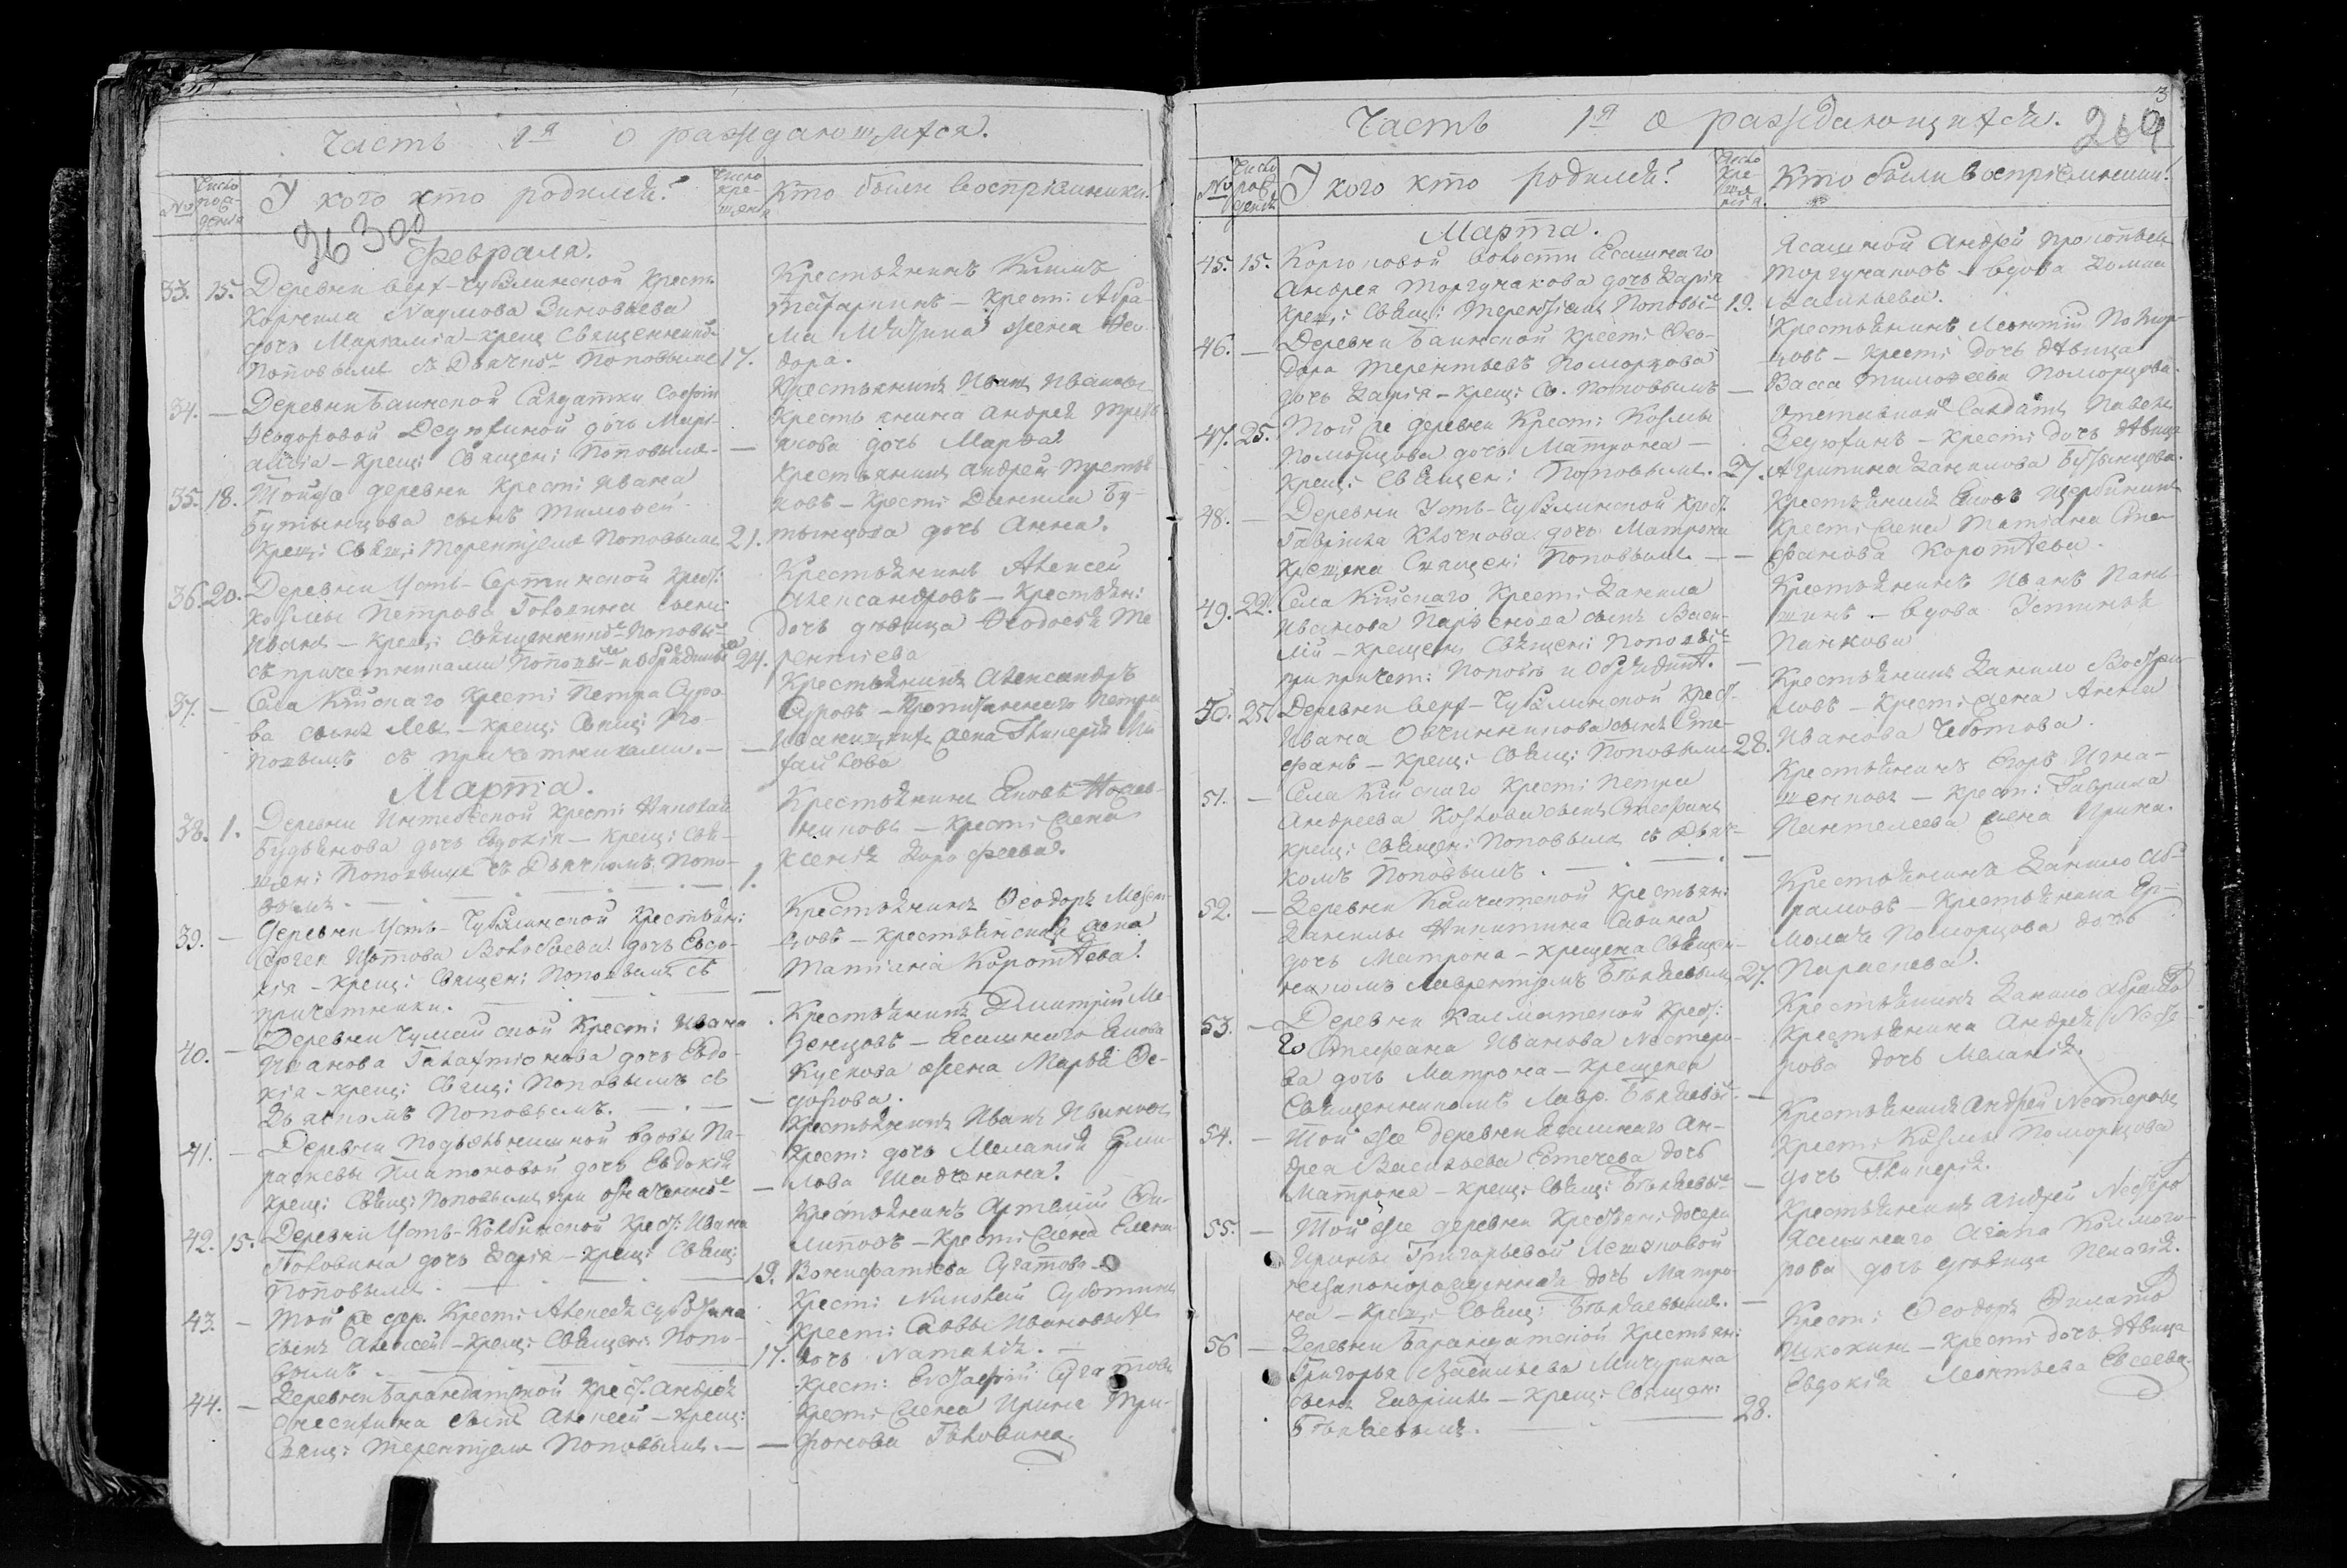 Часть 1я о раждающихся.
№
Число рождения
У кого кто родился?
Число крещения
Кто были Воспріимники.
Февраля.
33. 15. Деревни верх-Чубулинской Крест.
Корнила Наумова Зиновьева
дочь Маріамія - Крещ: Священникомъ
Поповымъ съ Дьячкомъ Поповымъ 17.
Крестьянинъ
Татаринъ - Крест: Абра-
ма жена Ѳео-
дора.
34. — Деревни Баимской Салдатки Софіи
Ѳеодоровой дочь Марі-
амія - Крещ: Священ: Поповымъ - —
Крестьянинъ Иванъ Ивановъ
Крестьянина Андрей Треть-
якова дочь Марѳа.
35. 18. Тойже деревни Крест: Ивана
Бутынцова сынъ Тимоѳей
Крещ: Свящ: Терентіемъ Поповымъ 21.
Крестьянинъ Андрей Третья-
ковъ - Крест: Данила Бу-
тынцова дочь Анна.
36. 20. Деревни Усть-Сертинской Крест:
Козмы Петрова Головина сынъ
Иванъ - Крещ: Священникомъ Поповы
съ причетниками Поповы и 24.
Крестьянинъ Алексей
Александровъ - Крестьян:
дочь девица Ѳеодосья Те
рентіева
37. — Села Кійскаго Крест: Петра Суро-
ва сынъ Левъ - Крещ: Свящ: По-
повымъ съ причетниками. - —
Крестьянинъ Александръ
Суровъ - Петра
жена Гликерія Ми
хайлова
Марта.
38. 1. Деревни Крест: Николая
Будьянова дочь Евдокія - Крещ: Свя-
щен: Поповымъ съ Дьячкомъ Попо-
вымъ. 1.
Крестьянинъ
Крест: жена
Ксенія Дорофеева.
39. — Деревни Усть-Чубулинской Крестьян:
Сергея Изотова Волобоева дочь Евдо-
кія - Крещ: Священ: Поповымъ съ
причетники. —
Крестьянинъ Ѳеодоръ Мезен-
цовъ - Крестьянская жена
Татіана Коротаева.
40. — Деревни Чумайской Крест: Ивана
Иванова Галахтіонова дочь Евдо-
кія - Крещ: Свящ: Поповымъ съ
Дьячкомъ Поповымъ. —
Крестьянинъ Дмитрій Ме-
зенцовъ - Ясашнаго Якова
Кускова жена Марѳа Ѳе-
дорова.
41. — Деревни вдовы Па-
расковы Платоновой дочь Евдокія
Крещ: Свящ: Поповымъ при означенно —
Крестьянинъ Иванъ Ивановъ
Крест: дочь Меланія Ерми-
лова
42. 15. Деревни Усть-Колбинской Крест: Ивана
Головина дочь Дарія - Крещ: Свящ:
Поповымъ. 19.
Крестьянинъ Артемій Фи-
липовъ - Крест: жена Елена
Вонифатіева
43. — Той же дер. Крест: Алексея Суботина
сынъ Алексей - Крещ: Священ: Попо-
вымъ. 17.
Крест: Николай Суботинъ
Крест: Саввы Иванова
дочь Наталія.
44. — Деревни Барандатской Крест. Андрея
Онисифина сынъ Алексей - Крещ:
Свящ: Терентіемъ Поповымъ. - —
Крест: Евстафій
Крест: жена Ирина Три-
фонова Головина.
3
Часть 1я о раждающихся. 269
№
Число рожденія
У кого кто родился?
Число Крещенія.
Кто были воспріемники?
Марта.
45. 15. волости Ясашнаго
Андрея Торгунакова дочь Дарія
Крещ: Свящ: Терентіемъ Поповы 19.
Ясашной Андрей
Торгунаковъ - вдова Домна
Васильева.
46. — Деревни Баимской Крест: Ѳео-
дора Терентьева Поморцова
дочь Дарія - Крещ: Св. Поповымъ —
Крестьянинъ Леонтій Помор-
цовъ - Крест: дочь девица
Васса Тимоѳеева Поморцова.
47. 25. Той же деревни Крест: Козмы
Поморцова дочь Матрона -
Крещ: Священ: Поповымъ. 27.
Отставной Салдатъ Павелъ
- Крест: дочь девица
Агрипина Данилова Бутынцова.
48. — Деревни Усть-Чубулинской Крест.
Гавріила Клочкова дочь Матрона
Крещена Священ: Поповымъ - —
Крестьянинъ Яковъ Щербининъ
Крест: жена Татіана Сте-
фанова Коротаева.
49. 22. Села Кійскаго Крест: Данила
Иванова сынъ Васи-
лій - Крещенъ Священ: Поповы
при причет: Поповъ и —
Крестьянинъ Иванъ Пань-
шинъ - вдова Устинья
Панкова
50. 25. Деревни верх-Чубулинской Крест.
Ивана Овчинникова сынъ Сте-
фанъ - Крещ: Свящ: Поповымъ 28.
Крестьянинъ Данило Востри-
ковъ - Крест: жена Анна
Иванова Чеботова.
51. — Села Кійскаго Крест: Петра
Андреева Козлова сынъ Стефанъ
Крещ: Священ: Поповымъ съ Дьяч-
комъ Поповымъ. —
Крестьянинъ Егоръ Игна-
шенковъ - Крест: Гаврила
Пантелеева жена Ирина.
52. — Деревни Крестьян:
Данилы Никитина Савина
дочь Матрона - Крещена Священ-
никомъ Лаврентіемъ 27.
Крестьянинъ Данило Аб-
рамовъ - Крестьянина Ер-
молая Поморцова дочь
Параскева.
53. — Деревни Крест:
Стефана Иванова Нестеро-
ва дочь Матрона - Крещена
Священникомъ Лавр. —
Крестьянинъ Данило Абрамов
Крестьянина Андрея Несте-
рова дочь Меланія.
54. — Той же деревни Ясашнаго Ан-
дрея Васильева дочь
Матрона - Крещ: Свящ: —
Крестьянинъ Андрей Нестеровъ
Крест: Козмы Поморцова
дочь Гликерія.
55. — Той же деревни Крестьян: дочери
Ирины Григорьевой
незаконорожденная дочь Матро-
на - Крещ: Свящ: —
Крестьянинъ Андрей Нестеро
Ясашнаго Агапа Колмого-
рова дочь девица Пелагія.
56 — Деревни Барандатской Крестьян:
Григорья Васильева Мичурина
сынъ Гавріилъ - Крещ: Священ:
28.
Крест: Ѳеодоръ Филато
Шкокинъ - Крест: дочь девица
Евдокія Леонтьева Евсеева.